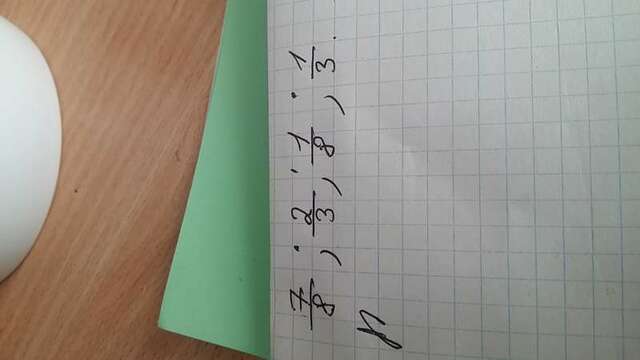 7/8 ; 2/3 ; 1/8 ; 1/3.